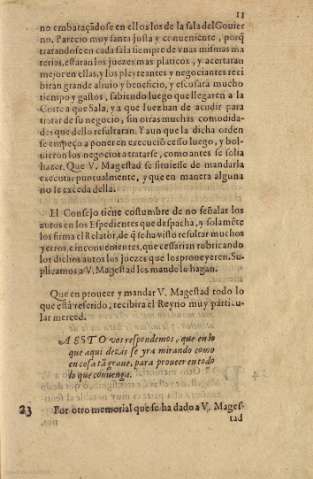 13
no embaraçãdose en ello a los de la sala del Gouier
no. Parecio muy santa justa y conueniente, porq̃
tratandose en cada sala tiempre de vnas mismas ma
terias, estaran los juezes mas platicos, y acertaran
mejor en ellas, y los pleyteantes y negociantes reci
biran grande aliuio y beneficio, y escusara mucho
tiempo y gastos, sabiendo luego que llegaren a la
Corte a que Sala, y a que Iuez han de acudir para
tratar de su negocio, sin otras muchas comodida-
des que dello resultaran. Y aun que la dicha orden
se empeço a poner en execucio cesso luego, y bol-
uieron los negocios a tratarse, como antes se solia
hazer. Que V. Magestad se siruiesse de mandarla
executar puntualmente, y que en manera alguna
no se exceda della.
El Consejo tiene costumbre de no señalar los
autos en los Espedientes que despacha, y solamẽte
los firma el Relator, de q̃ se ha visto resultar muchos
yerros, e inconuenientes, que cessarian rubricando
los dichos autos los juezes que los proueyeren. Su-
plicamos a V. Magestad les mande lo hagan.
Que en proueer y mandar V. Magestad todo lo
que està referido, recibira el Reyno muy particu
lar merced.
A ESTO vos respondemos, que en lo
que aqui dezis se yra mirando como
en cosa tã graue, para proueer en todo
lo que conuenga.
23 Por otro memorial que se ha dado a V. Mages-
tad